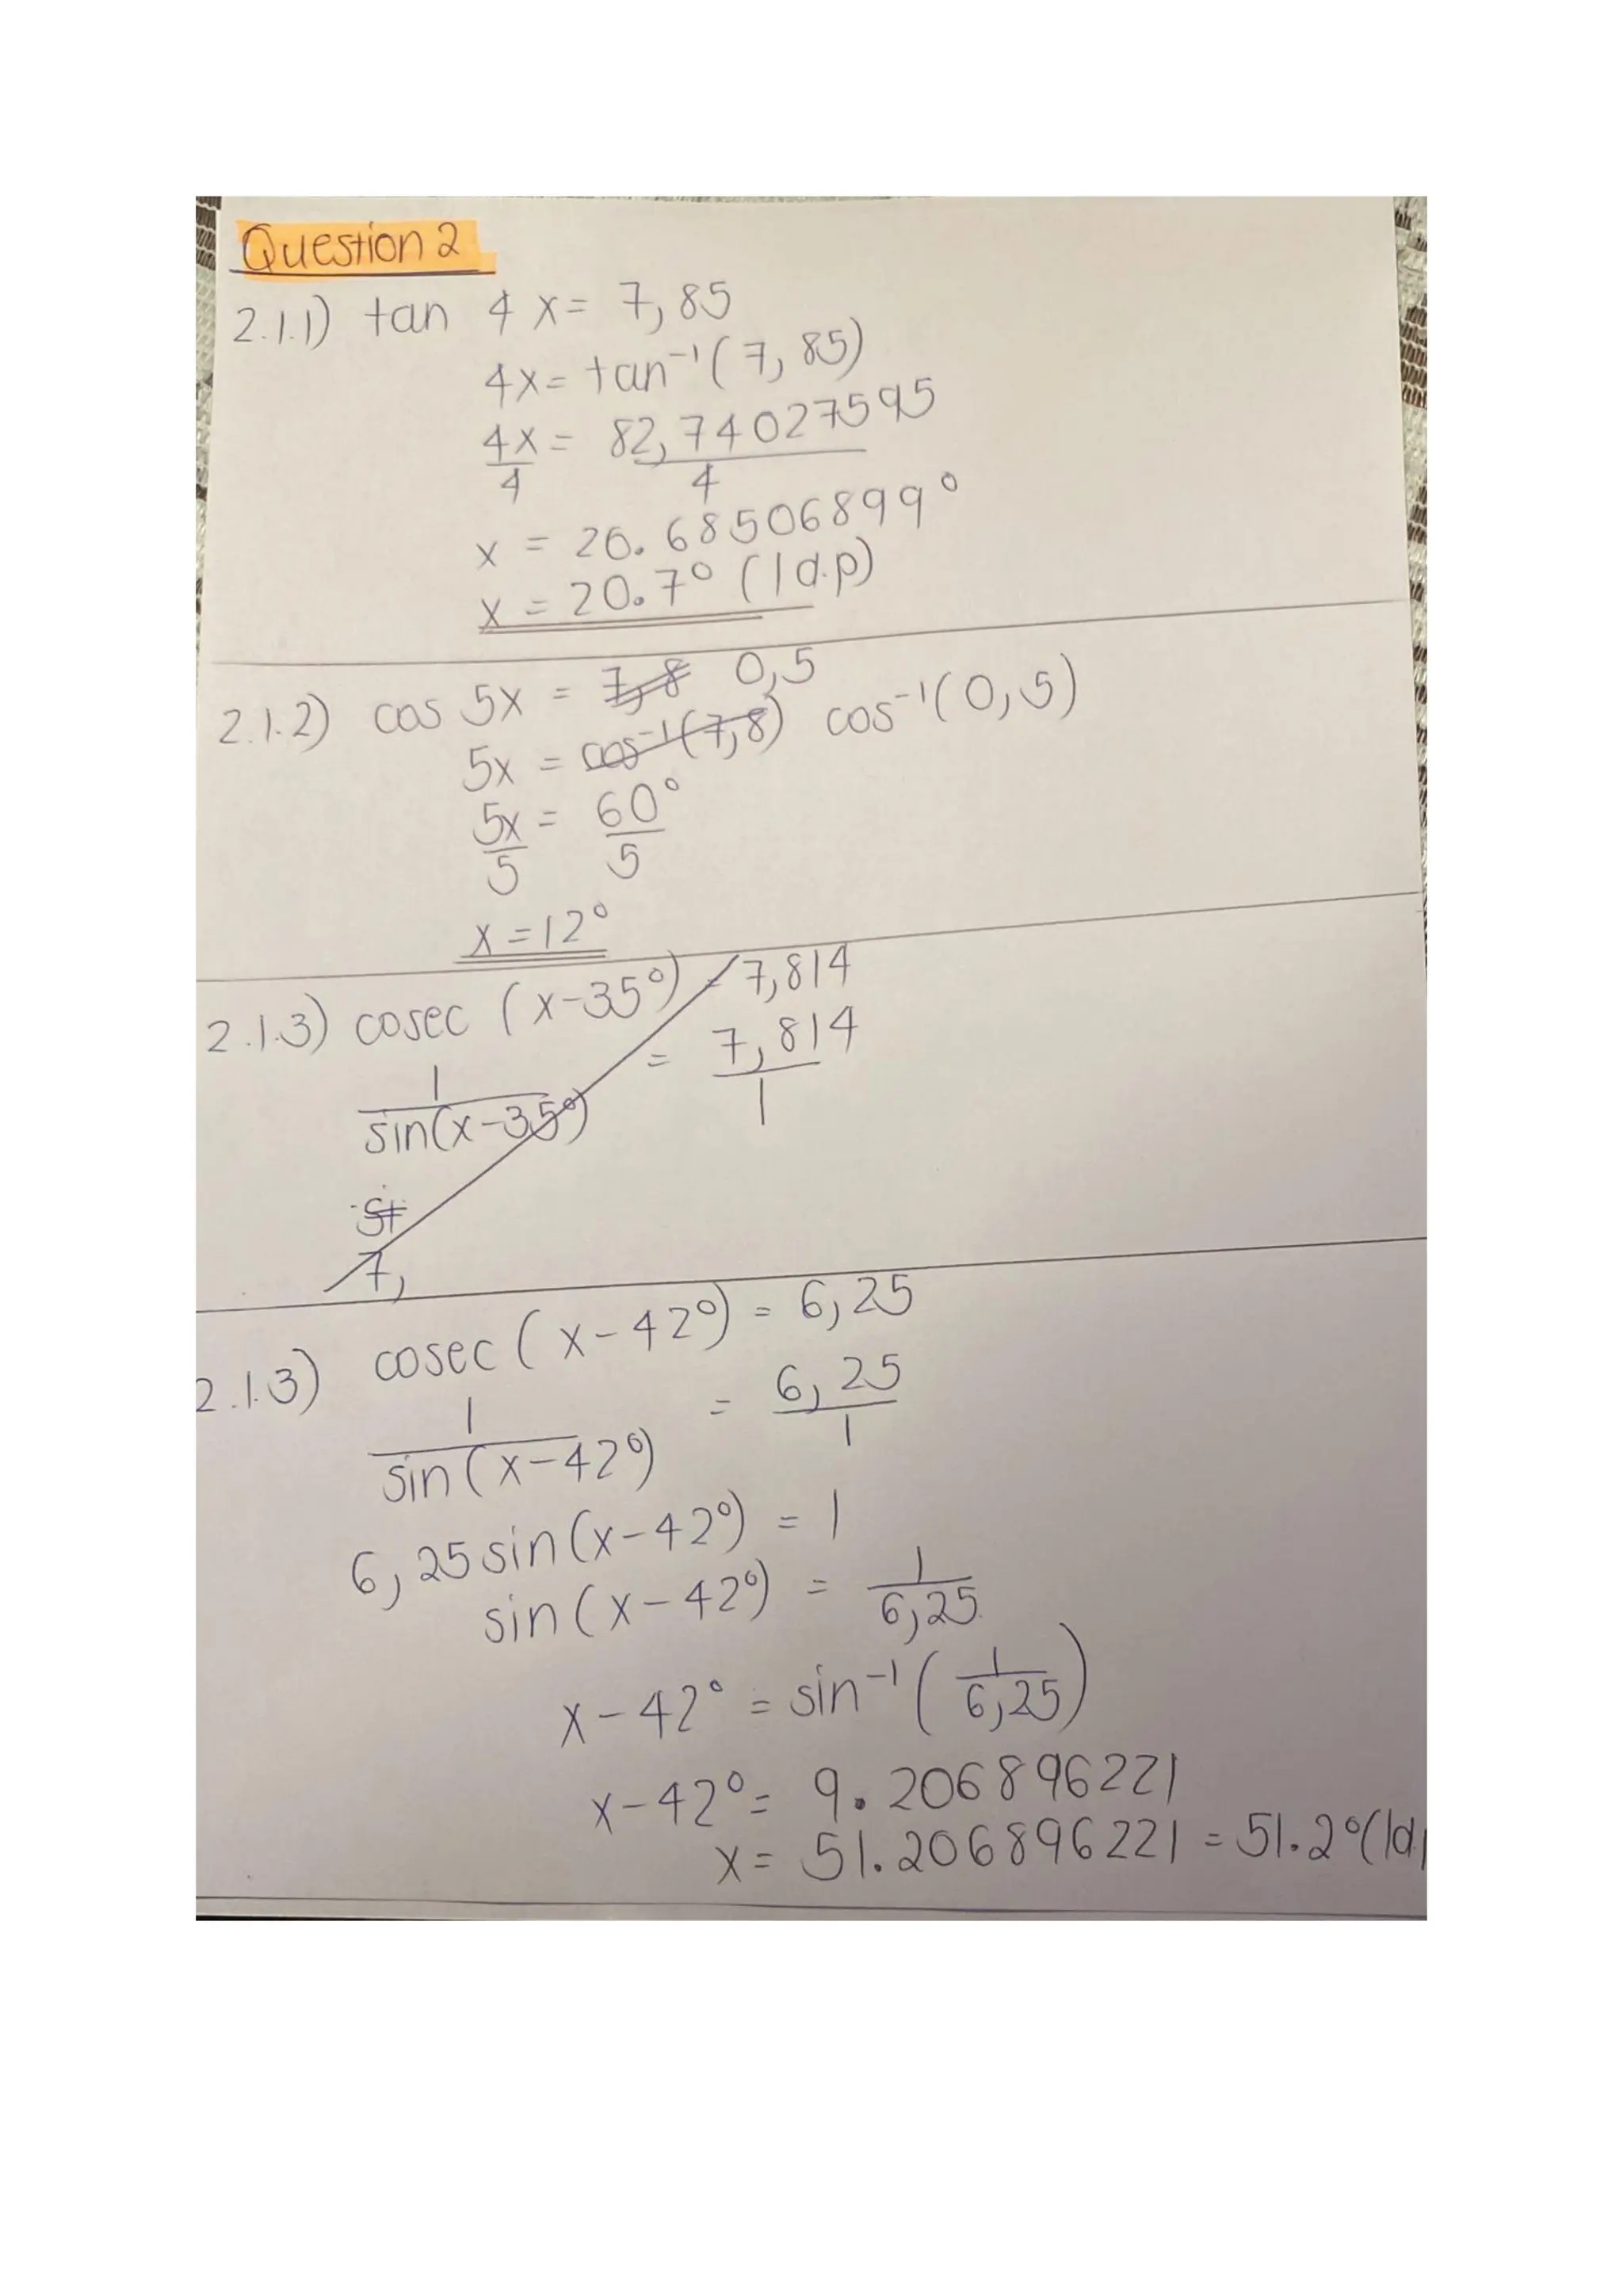 Question 2
2.1.1) tan 4x = 7,85
4x = tan⁻¹(7,85)
4x/4 = 82,74027595/4
x = 20.68506899°
x = 20.7° (1d.p)
2.1.2) cos 5x = 7,8 0,5
5x = cos⁻¹(7,8) cos⁻¹(0,5)
5x/5 = 60°/5
x = 12°
2.1.3) cosec (x-35°) = 7,814
1/sin(x-35°) = 7,814/1
7,
2.1.3) cosec (x-42°) = 6,25
1/sin(x-42°) = 6,25/1
6,25 sin(x-42°) = 1
sin(x-42°) = 1/6,25
x-42° = sin⁻¹(1/6,25)
x-42° = 9.206896221
x = 51.206896221 = 51.2° (1d.